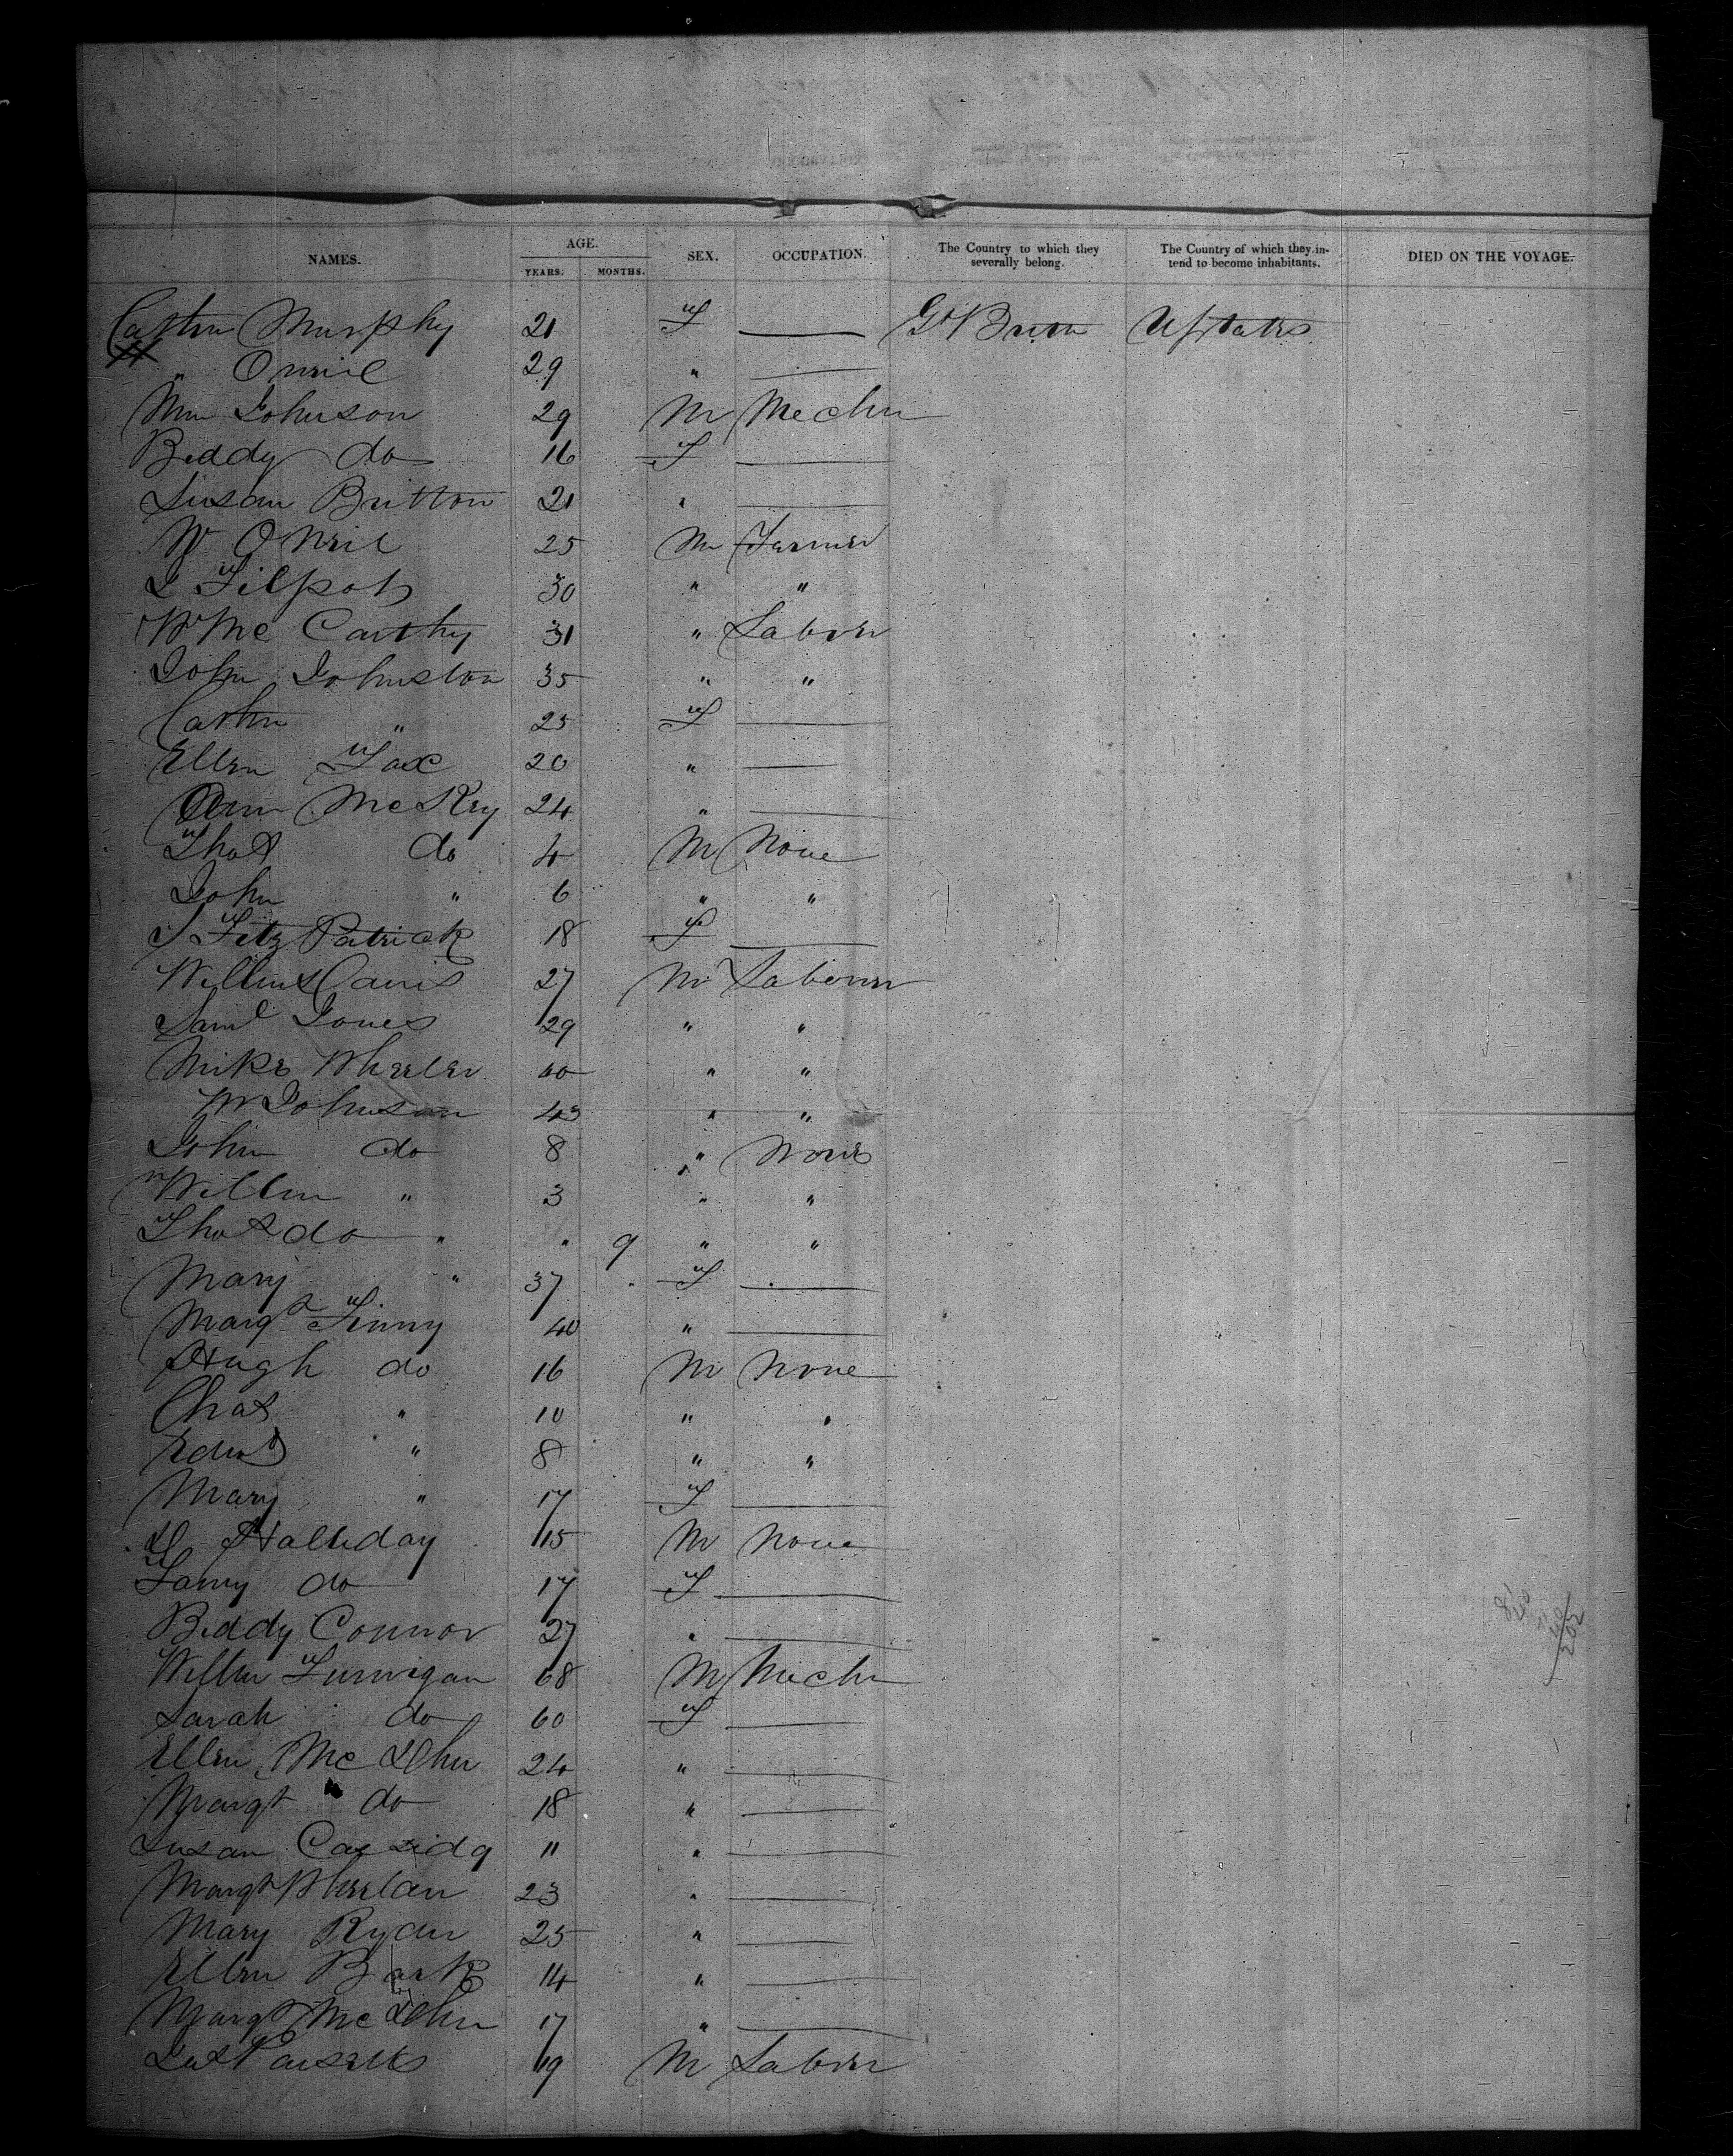 NAMES. AGE. YEARS. MONTHS. SEX. OCCUPATION. The Country to which they severally belong. The Country of which they intend to become inhabitants. DIED ON THE VOYAGE.
Cathn Murphy 21 F — Gt Britn UStates
" Oneil 29 " —
Wm Johnson 29 M Mechn
Biddy do 16 F —
Susan Britton 21 " —
W ONeil 25 M Farmer
J Filpots 30 " "
W McCarthy 31 " Laborer
John Johnston 35 " "
Cathn " 25 F —
Ellen Fox 20 " —
Ann McKey 24 " —
Thos do 4 M None
John " 6 " "
J FitzPatrick 18 F —
Willm Davis 27 M Laborer
Saml Jones 29 " "
Mike Wheeler 40 " "
W Johnson 43 " "
John do 8 " None
Willm " 3 " "
Thos do " " 9 " "
Mary " 37 F —
Margt Finny 40 " —
Hugh do 16 M None
Chas " 10 " "
Edwd " 8 " "
Mary " 17 F —
D Halliday 15 M None
Fanny do 17 F —
Biddy Connor 27 " —
Willm Funnigan 68 M Mechn
Sarah do 60 F —
Ellen Mc 24 " —
Margt do 18 " —
Susan Cassidy 11 " —
Margt Wheelan 23 " —
Mary Ryder 25 " —
Ellen 14 " —
Margt Mc 17 " —
Jas 19 M Laborer